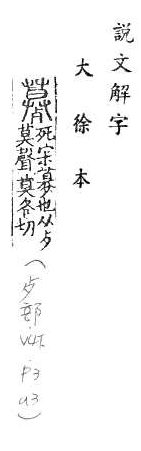 説文解字
大徐本
死也从歺
莫聲莫各切
(歺部 V4下 P3 a3)